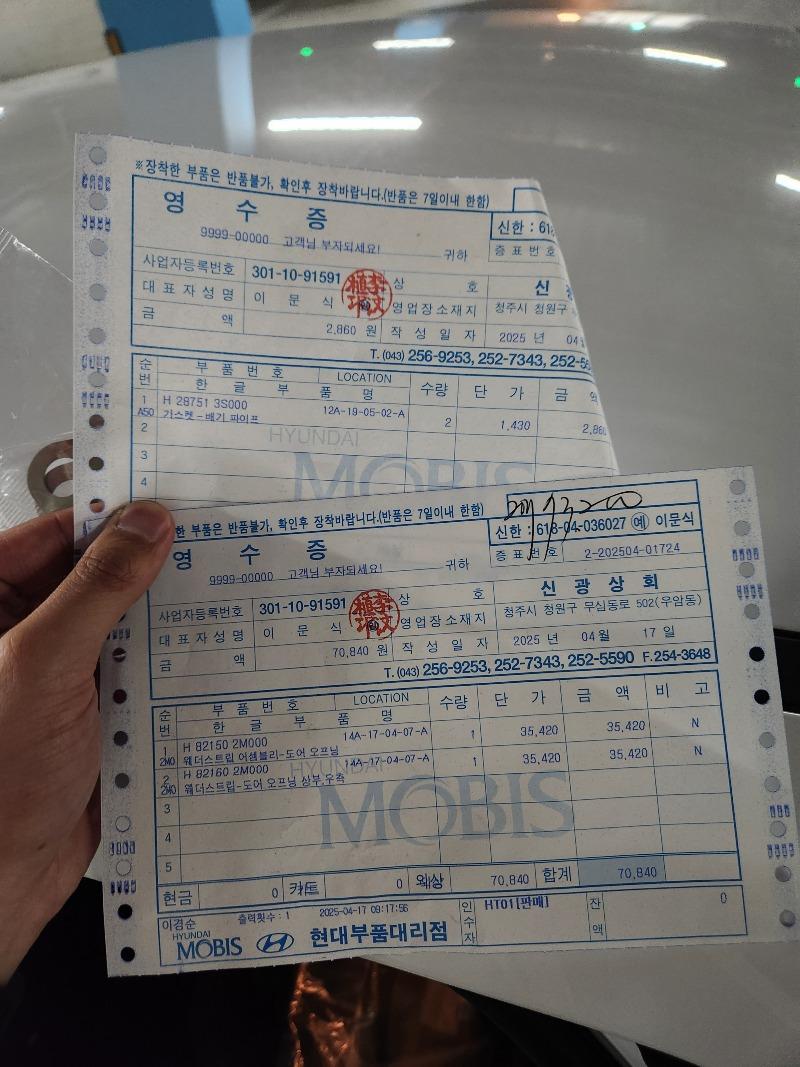 ※장착한 부품은 반품불가, 확인후 장착바랍니다.(반품은 7일이내 한함)
영 수 증
신한 : 618
9999-00000 고객님 부자되세요! 귀하
증 표 번 호
사업자등록번호 301-10-91591 상 호 신
대 표 자 성 명 이 문 식 영업장소재지 청주시 청원구
금 액 2,860 원 작 성 일 자 2025 년 04
T. (043) 256-9253, 252-7343, 252-55
순번 부 품 번 호 LOCATION 수량 단 가 금
한 글 부 품 명
1 H 28751 3S000 12A-19-05-02-A 2 1,430 2,860
A50 가스켓-배기 파이프
2
HYUNDAI
3
MOBIS
4
한 부품은 반품불가, 확인후 장착바랍니다.(반품은 7일이내 한함)
영 수 증
신한 : 618-04-036027 예 이문식
9999-00000 고객님 부자되세요! 귀하
증 표 번 호 2-202504-01724
사업자등록번호 301-10-91591 상 호 신 광 상 회
대 표 자 성 명 이 문 식 영업장소재지 청주시 청원구 무심동로 502(우암동)
금 액 70,840 원 작 성 일 자 2025 년 04월 17 일
T. (043) 256-9253, 252-7343, 252-5590 F.254-3648
순번 부 품 번 호 LOCATION 수량 단 가 금 액 비 고
한 글 부 품 명
1 H 82150 2M000 14A-17-04-07-A 1 35,420 35,420 N
2M0 웨더스트립 어셈블리-도어 오프닝
2 H 82160 2M000 14A-17-04-07-A 1 35,420 35,420 N
2M0 웨더스트립-도어 오프닝 상부,우측
HYUNDAI
MOBIS
3
4
5
현금 0 카드 0 외상 70,840 합계 70,840
이경순 출력횟수 : 1 2025-04-17 09:17:56 인수자 HT01[판매] 잔액 0
HYUNDAI
MOBIS 현대부품대리점